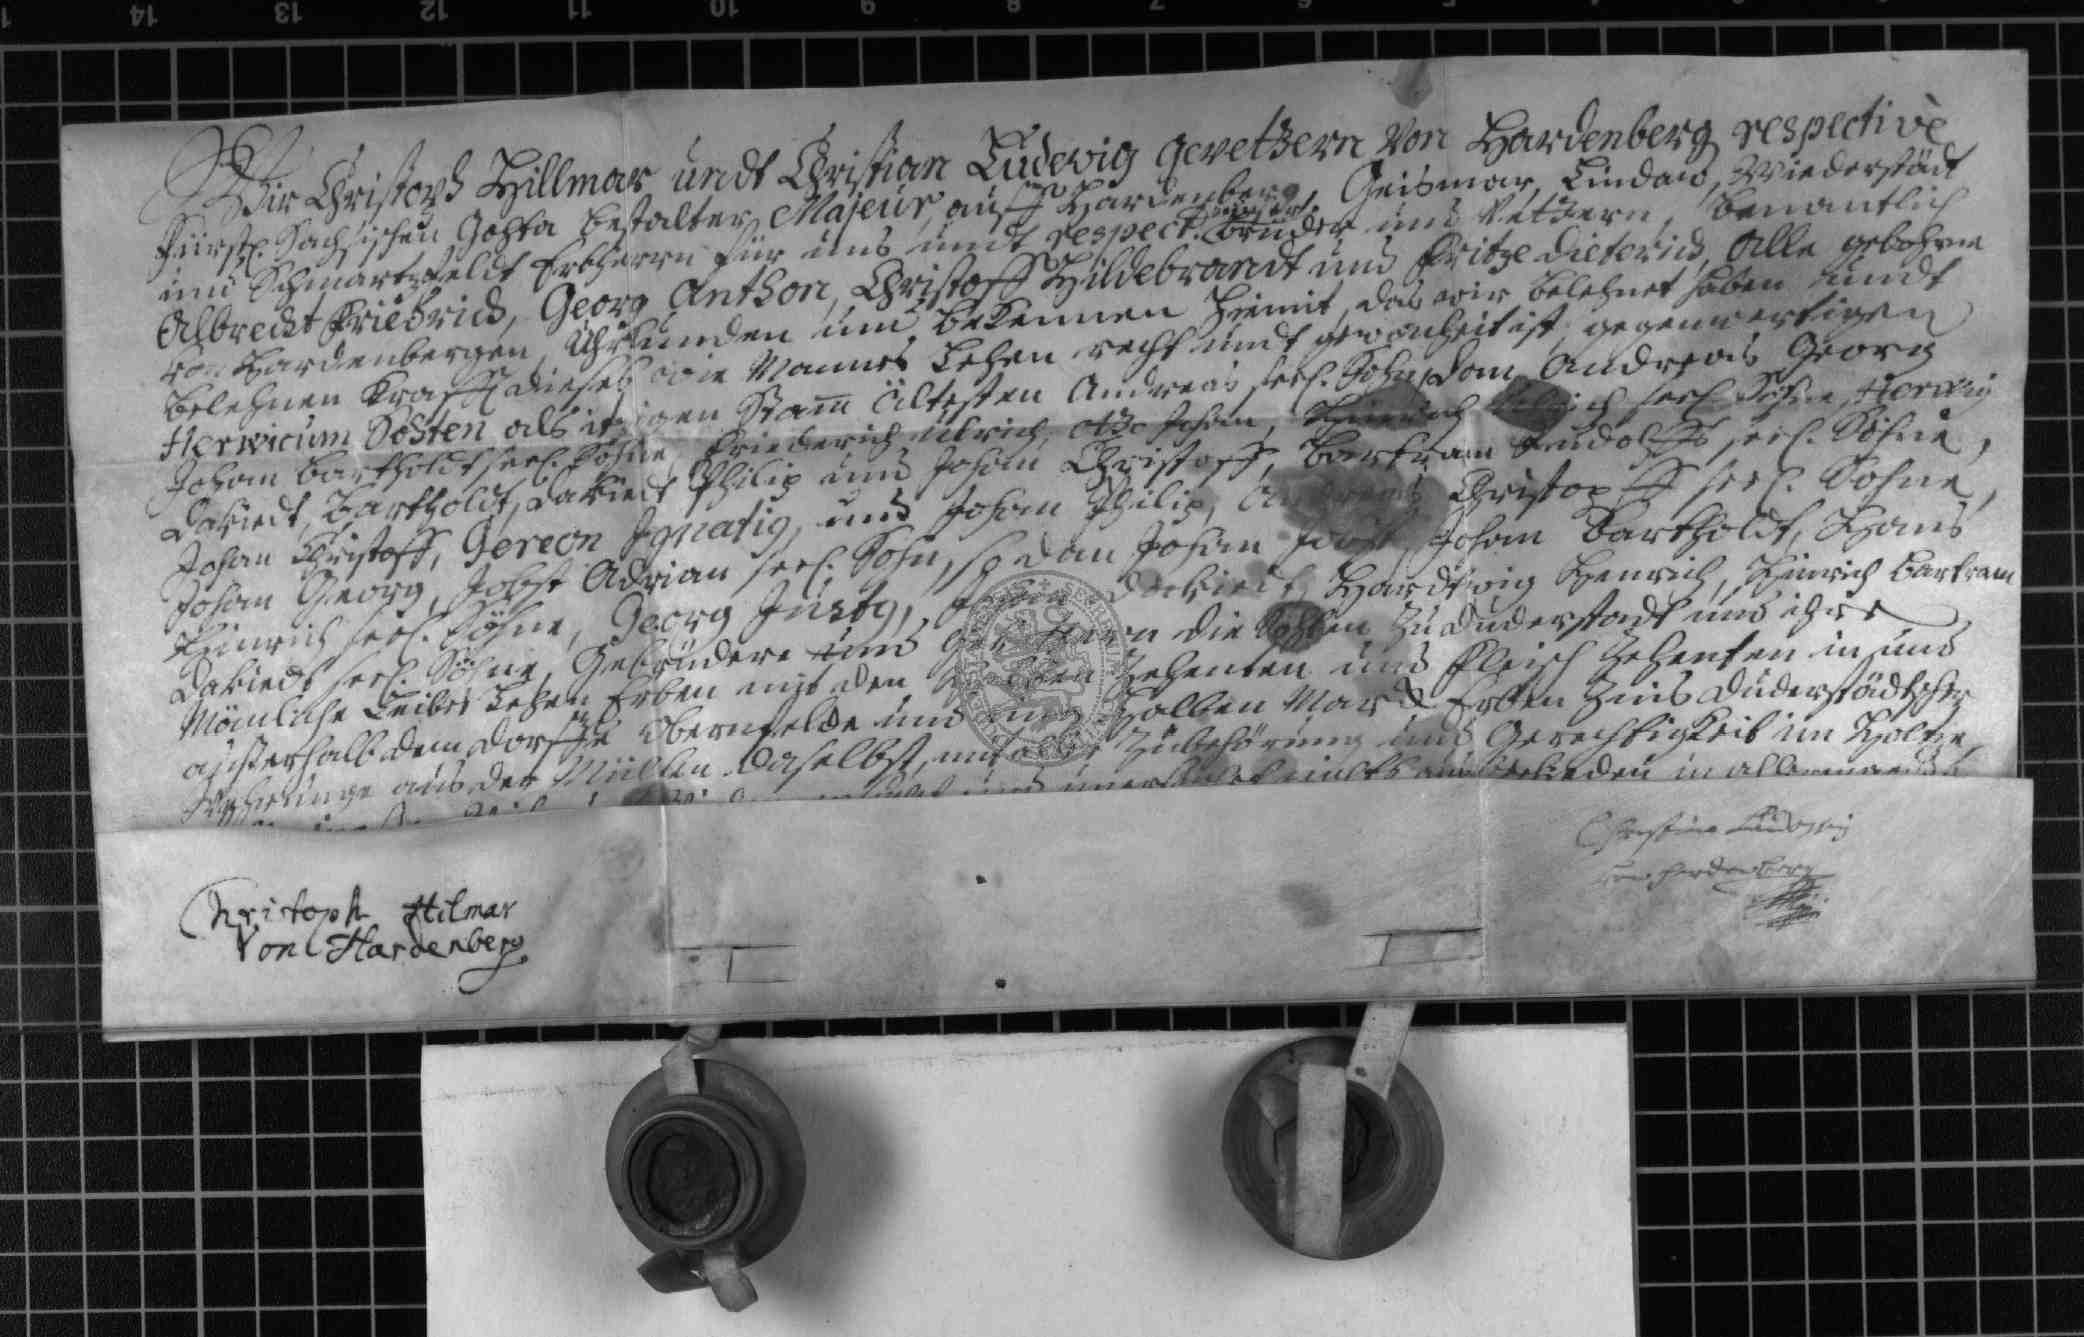 Wir Christoph Hillmar undt Christian Ludewig gevettern von Hardenberg respective
Fürstl. Sachsischen Gohta bestalter Majeur, auff Hardenberg, Geismar, Lindaw, Wiederstädt
und Schwartzfeldt Erbherrn für uns undt respect. Brüder und Vettern, benantlich
Albrecht Friedrich, Georg Anthon, Christoff Hildebrandt und Fritze Dieterich, Alle gebohrne
von Hardenbergen, Uhrkunden und bekennen hiemit, das wir belehnet haben undt
belehnen Krafft dieses wie Mannes Lehen recht undt gewonheit ist, gegenwertigen
Herwicum Sösten als itzigen Stam Ältesten Andreas seel. Sohn, dan Andreas Georg
Johan Bartholdt seel. Söhne, Friederich Ulrich, Otto Johan, Hinrich seel. Söhne, Herwig
Daviedt, Bartholdt, Daviedt Philip und Johan Christoff, Bartram Rudolffs seel. Söhne,
Johan Christoff, Gereon Ignatig, und Johan Philip, Andreas Christoff seel. Sohne,
Johan Georg, Jobst Adrian seel. Sohn, so dan Johan Jobst, Johan Bartholdt, Hans
Hinrich seel. Söhne, Georg Justg, Johan Daviedt, Hardtwig Henrich, Hinrich Bartram
Daviedt seel. Söhne, Gebrüdere und Gevettern die Sösten zu Duderstadt und ihre
Mänliche Leibes Lehen Erben mit den halben Zehenten und Fleisch Zehenten in und
ausserhalb dem Dorffe Obernfelde und halben Marck Erben Zins Duderstädtscher
Wehrunge aus der Mühlen daselbst, mit aller Zubehörung und Gerechtigkeit im Holtze,
Christoph Hilmar
Von Hardenberg
Christian Ludewig
von Hardenberg
14 13 12 11 10 9 8 7 6 5